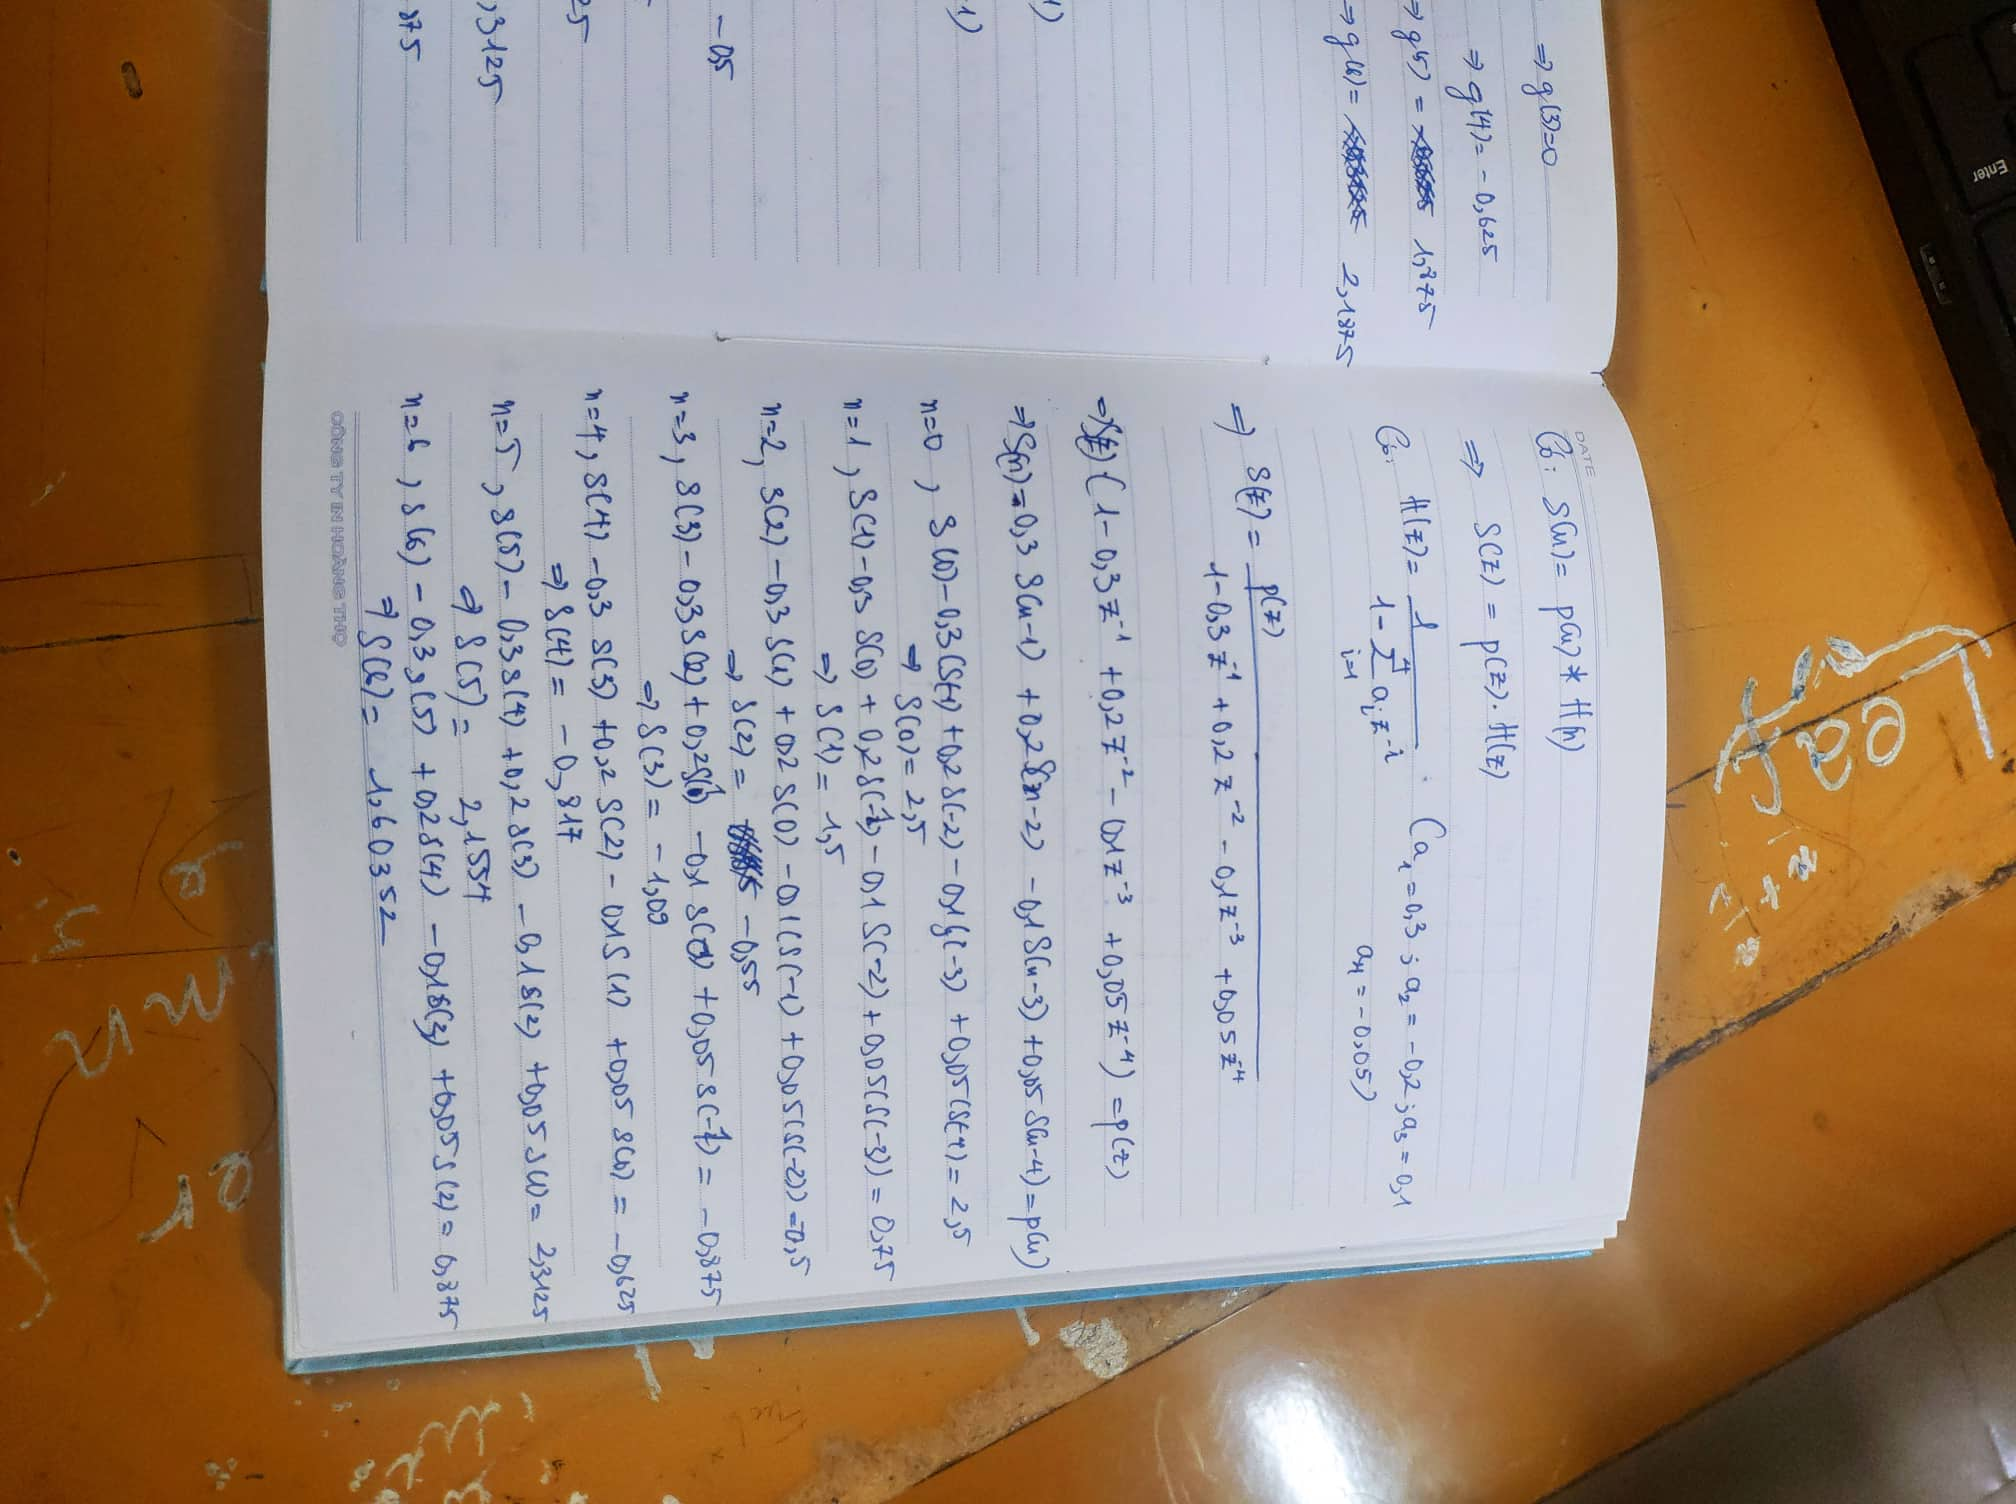 ⇒ g(3)=0
⇒ g(4)= -0,625
⇒ g(5) = 1,875
⇒ g(6)= 2,1875
1)
-1)
- 0,5
25
,3125
875
DATE
Có: S(n)= p(n) * H(n)
⇒ S(z) = p(z). H(z)
Có: H(z)= 1 / 1-∑ i=1 4 a_i z^-i : (a_1=0,3 ; a_2=-0,2 ; a_3=0,1
a_4=-0,05)
⇒ S(z) = p(z) / 1-0,3z^-1 +0,2z^-2 -0,1z^-3 +0,05z^-4
⇒S(z) (1-0,3z^-1 +0,2z^-2 -0,1z^-3 +0,05z^-4) =p(z)
⇒S(n)-0,3 S(n-1) +0,2S(n-2) -0,1S(n-3)+0,05S(n-4)=p(n)
n=0, S(0)-0,3(S(-1)+0,2S(-2)-0,1S(-3)+0,05(S(-4)=2,5
⇒ S(0)=2,5
n=1, S(1)-0,3 S(0)+0,2S(-1)-0,1S(-2)+0,05(S(-3))=0,75
⇒ S(1)=1,5
n=2, S(2)-0,3S(1)+0,2S(0)-0,1(S(-1)+0,05(S(-2))=-0,5
⇒ S(2)= -0,55
n=3, S(3)-0,3S(2)+0,2S(1)-0,1S(0)+0,05S(-1)=-0,875
⇒ S(3)=-1,09
n=4, S(4)-0,3S(3)+0,2S(2)-0,1S(1)+0,05S(0)=-0,625
⇒ S(4)= -0,817
n=5, S(5)-0,3S(4)+0,2S(3)-0,1S(2)+0,05S(1)=2,3125
⇒ S(5)= 2,1554
n=6, S(6)-0,3S(5)+0,2S(4)-0,1S(3)+0,05S(2)=0,875
⇒ S(6)= 1,60352
CÔNG TY IN HOÀNG THỌ
Enter